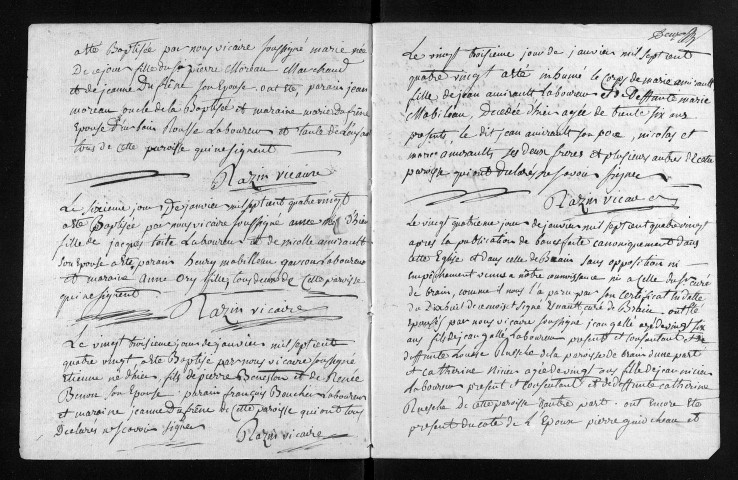 a été Baptisée par nous vicaire soussigné marie née
De ce jour fille du Sr pierre Moreau Marchand
et de jeanne Dufrêne son Epouse ont été, parain jean
moreau oncle de la Baptisée et maraine marie dufrêne
Epouse D'urbain Rousse Laboureur et tante de
tous de cette paroisse qui ne signent
Razin vicaire
Le Sixième jour De janvier mil sept cent quatre vingt
a été Baptisée par nous vicaire soussigné anne née D'hier
fille de jacques Laboureur et de nicolle amirault
son Epouse a été parain henry mabilleau garçon Laboureur
et maraine Anne Ory fille, tous deux de Cette paroisse
qui ne signent
Razin vicaire
Le vingt troisieme jour de janvier mil sept cent
quatre vingt a été Baptisé par nous vicaire soussigné
Etienne né d'hier, fils de pierre Beneston et de Renée
Benon son Epouse parain françois Boucher Laboureur
et maraine jeanne dufrêne de Cette paroisse qui ont tous
Déclarés ne sçavoir signer
Razin vicaire
Le vingt troisieme jour de janvier mil sept cent
quatre vingt a été inhumé le Corps de marie amirault
fille de jean amirault Laboureur Et De deffunte marie
Mabileau, Decedée d'hier agée de trente six ans
présents le dit jean amirault son pere, nicolas et
marc amirault ses deux freres et plusieurs autres de cette
paroisse qui ont declarés ne sçavoir signer
Razin vicaire
Le vingt quatrieme jour de janvier mil sept cent quatre vingt
après la publication de bans faite canoniquement dans
cette Eglise et dans celle de Brain sans opposition ni
Empêchement venus a notre connoissance ni a celle du Sr curé
de brain, comme il nous l'a paru par son certificat en datte
du de ce mois et signé curé de Brain, ont été
épousés par nous vicaire soussigné jean gallé agé de vingt six
ans fils de jean gallé Laboureur présent et consentant et de
deffunte Louise Ruesche de la paroisse de brain d'une part
et Catherine agée de vingt ans fille de jean
Laboureur présent et consentant et de deffunte catherine
Ruesche de cette paroisse d'autre part. ont encore été
présent du coté de L'Epoux pierre guindreau et